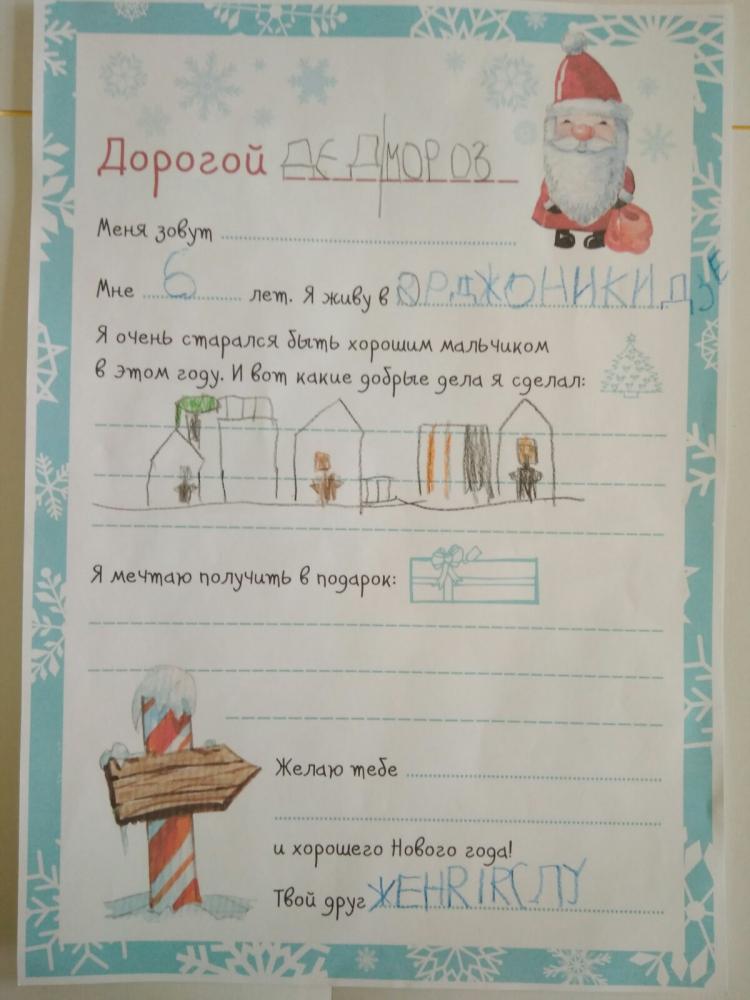 Дорогой ДЕД МОРОЗ
Меня зовут
Мне 6 лет. Я живу в ОРДЖОНИКИДЗЕ
Я очень старался быть хорошим мальчиком
в этом году. И вот какие добрые дела я сделал:
Я мечтаю получить в подарок:
Желаю тебе
и хорошего Нового года!
Твой друг